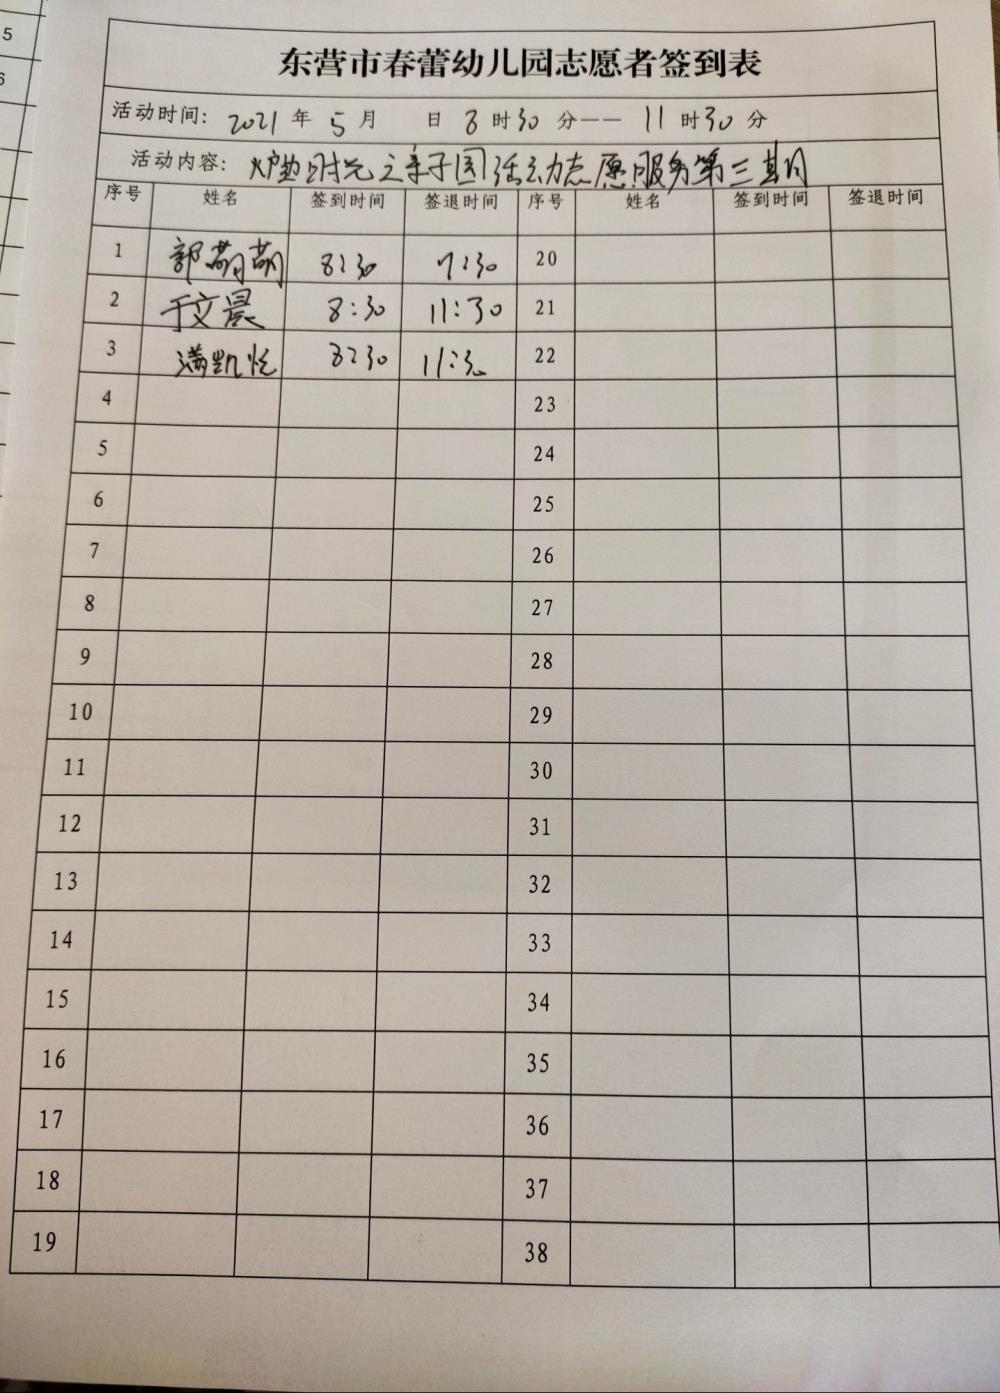 5
6
东营市春蕾幼儿园志愿者签到表
活动时间: 2021 年 5 月 日 8 时 30 分—— 11 时 30 分
活动内容: 时光之亲子园活动志愿服务第三期
序号 姓名 签到时间 签退时间 序号 姓名 签到时间 签退时间
1 郭萌萌 8:30 11:30 20
2 于文晨 8:30 11:30 21
3 满凯悦 8:30 11:30 22
4 23
5 24
6 25
7 26
8 27
9 28
10 29
11 30
12 31
13 32
14 33
15 34
16 35
17 36
18 37
19 38